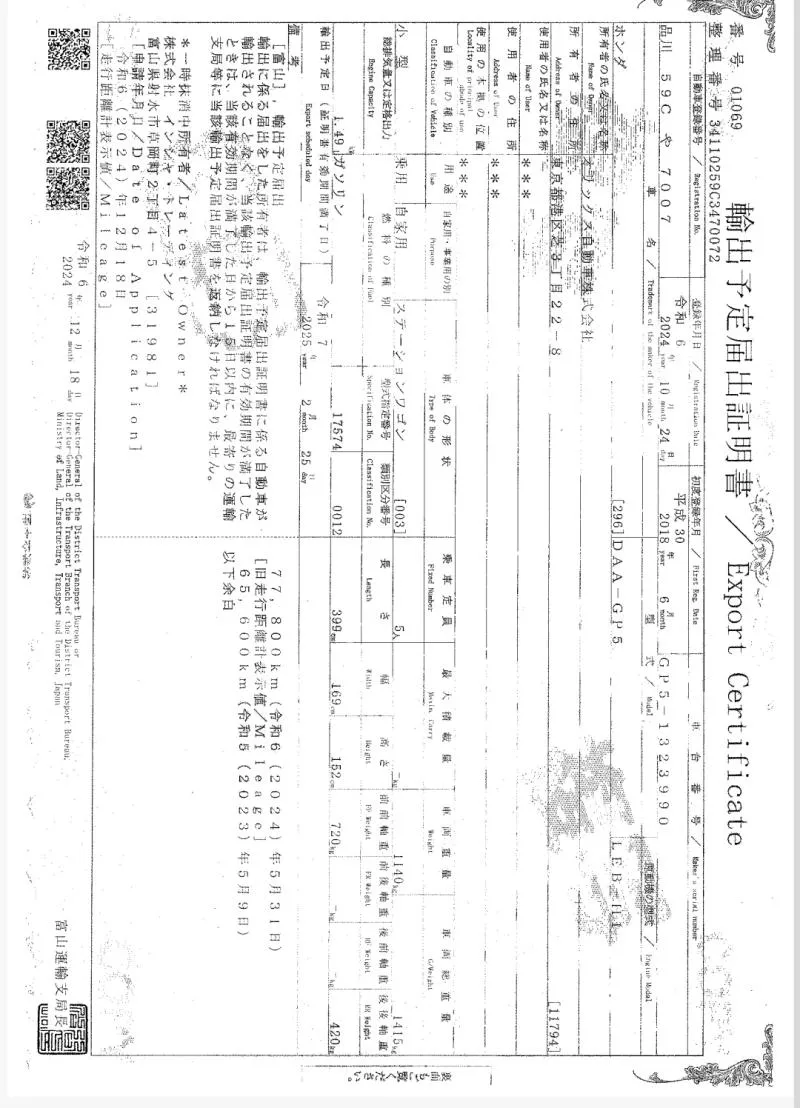 輸出予定届出証明書 / Export Certificate
番号 01069
整理番号 34110259C3470072
自動車登録番号 / Registration No.
登録年月日 / Registration Date
初度登録年月 / First Reg. Date
車台番号 / Maker's serial number
品川 59C や 7007
令和 6 年 10 月 24 日
2024 year month day
平成 30 年 6 月
2018 year month
GP5-1323990
車名 / Trademark of the maker of the vehicle
型式 / Model
原動機の型式 / Engine Model
ホンダ
[296] DAA-GP5
LEB-H1
所有者の氏名又は名称
Name of Owner
オリックス自動車株式会社
所有者の住所
Address of Owner
東京都港区芝3丁目22-8
[11794]
使用者の氏名又は名称
Name of User
***
使用者の住所
Address of User
***
使用の本拠の位置
Locality of principal abode of use
***
自動車の種別
Classification of Vehicle
用途
Use
自家用・事業用の別
Purpose
車体の形状
Type of Body
乗車定員
Fixed Number
最大積載量
Maxim. Carry
車両重量
Weight
車両総重量
G/Weight
小型
乗用
自家用
ステーションワゴン
[003]
5人
-kg
1140kg
1415kg
総排気量又は定格出力
Engine Capacity
燃料の種別
Classification of Fuel
型式指定番号
Specification No.
類別区分番号
Classification No.
長さ
Length
幅
Width
高さ
Height
前前軸重
FF Weight
前後軸重
FR Weight
後前軸重
RF Weight
後後軸重
RR Weight
1.49
ガソリン
17574
0012
399cm
169cm
152cm
720kg
-kg
-kg
420kg
輸出予定日(証明書有効期間満了日)
Export scheduled day
令和 7 年 2 月 25 日
2025 year month day
備考
[富山], 輸出予定届出
輸出に係る届出をした所有者は、輸出予定届出証明書に係る自動車が
輸出されることなく、当該輸出予定届出証明書の有効期間が満了した
ときは、当該有効期間が満了した日から15日以内に、最寄りの運輸
支局等に当該輸出予定届出証明書を返納しなければなりません。
*一時抹消中所有者/Latest Owner*
株式会社 インシャ・トレーディング
富山県射水市草岡町2丁目4-5 [31981]
[申請年月日/Date of Application]
令和6(2024)年12月18日
[走行距離計表示値/Mileage]
77,800km(令和6(2024)年5月31日)
[旧走行距離計表示値/Mileage]
65,600km(令和5(2023)年5月9日)
以下余白
令和 6 年 12 月 18 日
2024 year month day
Director-General of the District Transport Bureau or
Director-General of the Transport Branch of the District Transport Bureau,
Ministry of Land, Infrastructure, Transport and Tourism, Japan
富山運輸支局長
裏面もご覧ください。